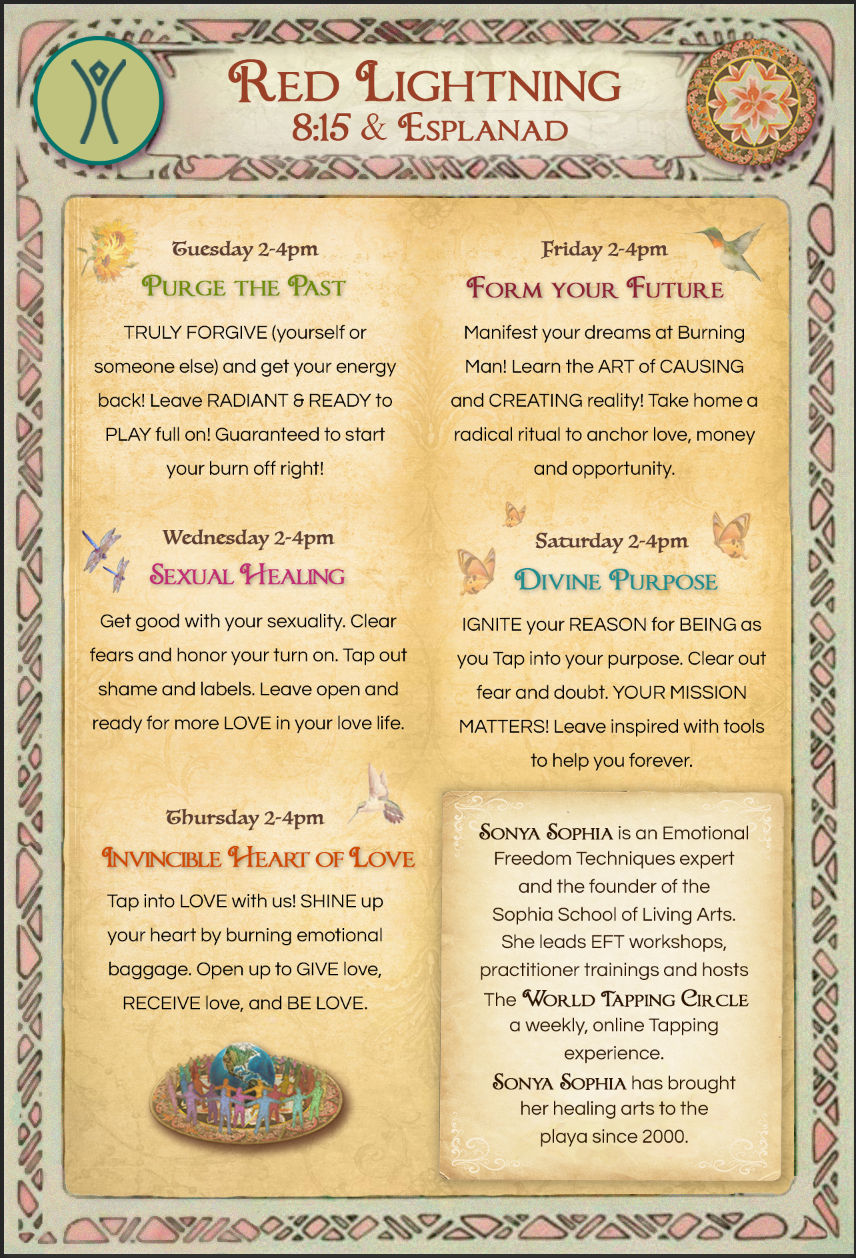 Red Lightning
8:15 & Esplanad
Tuesday 2-4pm
Purge the Past
TRULY FORGIVE (yourself or
someone else) and get your energy
back! Leave RADIANT & READY to
PLAY full on! Guaranteed to start
your burn off right!
Wednesday 2-4pm
Sexual Healing
Get good with your sexuality. Clear
fears and honor your turn on. Tap out
shame and labels. Leave open and
ready for more LOVE in your love life.
Thursday 2-4pm
Invincible Heart of Love
Tap into LOVE with us! SHINE up
your heart by burning emotional
baggage. Open up to GIVE love,
RECEIVE love, and BE LOVE.
Friday 2-4pm
Form your Future
Manifest your dreams at Burning
Man! Learn the ART of CAUSING
and CREATING reality! Take home a
radical ritual to anchor love, money
and opportunity.
Saturday 2-4pm
Divine Purpose
IGNITE your REASON for BEING as
you Tap into your purpose. Clear out
fear and doubt. YOUR MISSION
MATTERS! Leave inspired with tools
to help you forever.
Sonya Sophia is an Emotional
Freedom Techniques expert
and the founder of the
Sophia School of Living Arts.
She leads EFT workshops,
practitioner trainings and hosts
The World Tapping Circle
a weekly, online Tapping
experience.
Sonya Sophia has brought
her healing arts to the
playa since 2000.